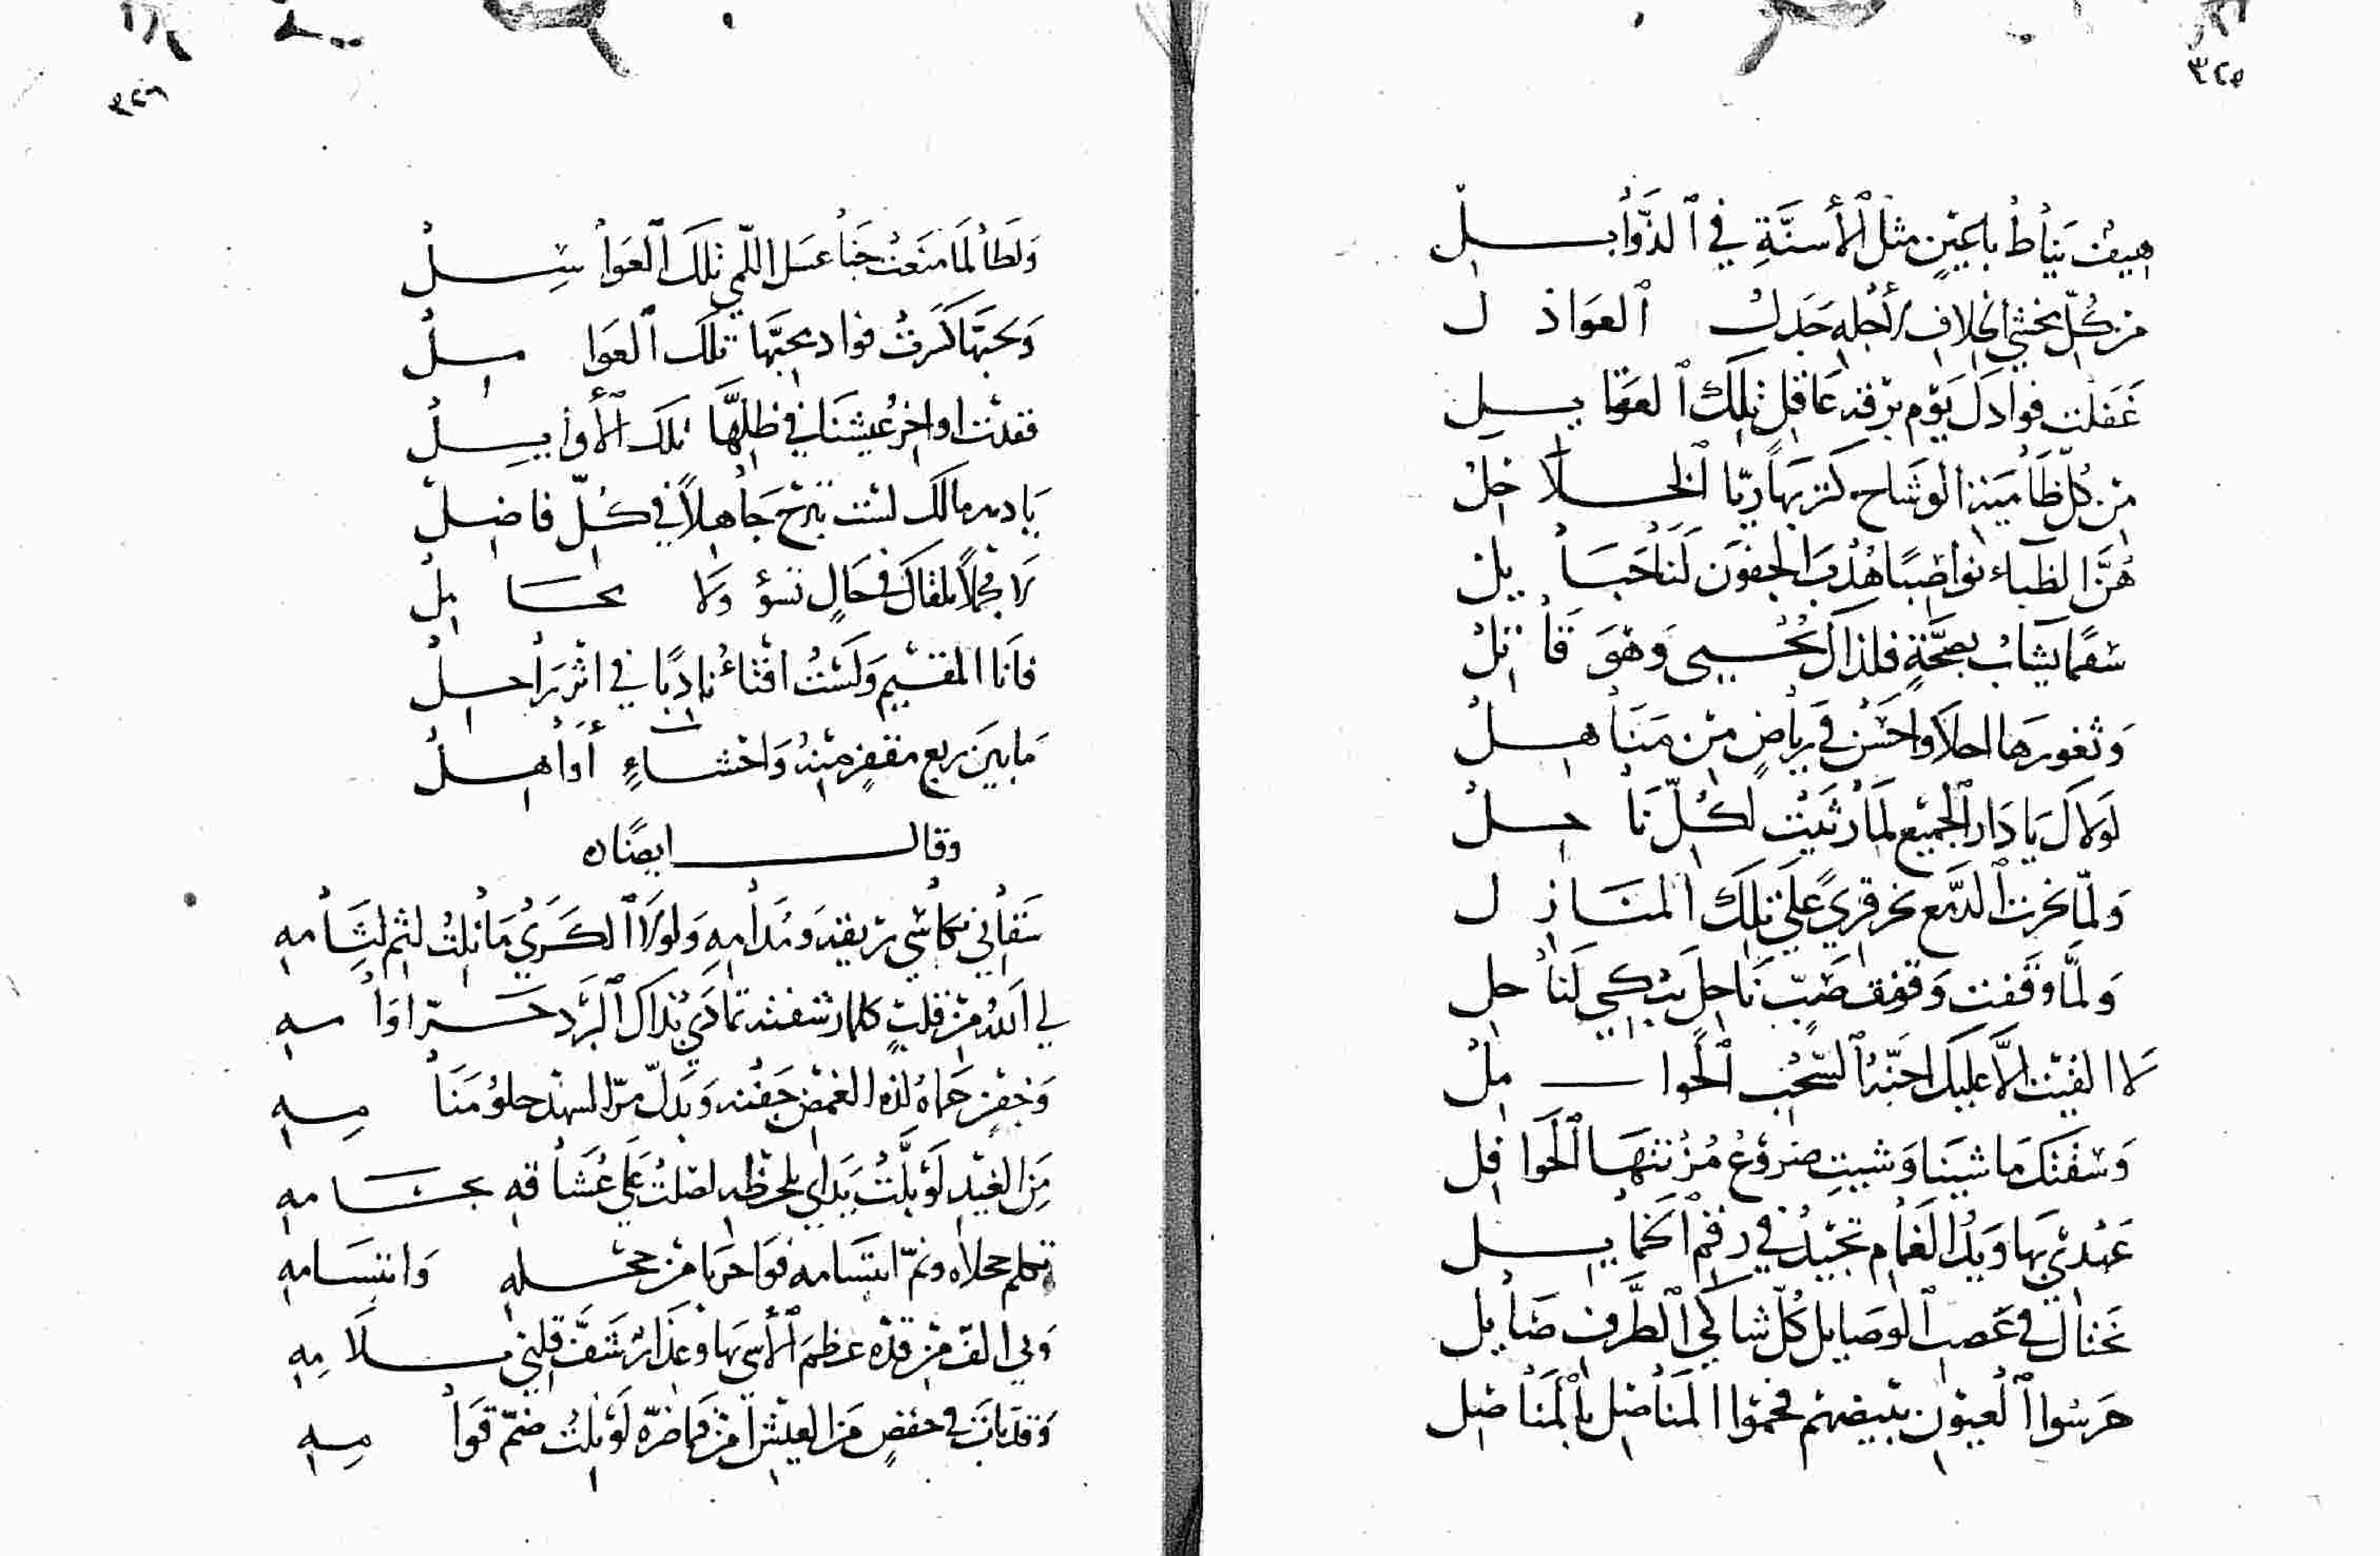 ٣٢٥
هيف يناط باعين مثل الأسنة في الذوابل
من كل يخشي الخلاف لأجله جدل العواذل
غفلت فوادك يوم برقة عاقل تلك العقايل
من كل ظامية الوشاح كتربها ريا الخلاخل
هن الظباء نواضبا هدب الجفون لنا حبايل
سقما يشاب بصحة فلذاك يحيي وهو قاتل
وثغورها احلا واحسن في رياض من مناهل
لولاك يا دار الجميع لما رثيت لكل ناحل
ولما نحرت الدمع نحر قري علي تلك المنازل
ولما وقفت وقوف صب ناحل يبكي لناحل
لا الفيت الا عليك احنة السحب الحوامل
وسقتك ما شينا وشيت ضروع مزنتها الحوافل
عهدي بها ويد الغمام تجيد في رقم الخمايل
تختال في عصب الوصايل كل شاكي الطرف صايل
حرسوا العيون ببيضهم فحموا المناصل بالمناصل
٣٢٦
ولطالما منعت جنا عسل اللمي تلك العواسل
وبحبها كرت فوادي بحبها تلك العوامل
فقدت اواخر عيشنا في ظلها تلك الأوايل
يا دهر مالك لست تبرح جاهلا في كل فاضل
لا مجملا يلقاك في حال تسؤ ولا مجامل
فانا المقيم ولست افتاء نادبا في اثر راحل
ما بين ربع مقفر منه واحشاء أواهل
وقال ايضا
سقاني بكاسي ريقه ومدامه ولولا الكري ما نلت لثم لثامه
لي الله من قلب كلما رشفته تمادي بذاك البرد حر اوامه
وجفن حماه لذة الغمض جفنه وبدل مر السهد حلو منامه
من الغيد لو بلت يداي بلحظه لصلت علي عشاقه بحسامه
تكلم حجلاه ونم ابتسامه فواحربا من حجله وابتسامه
وبي الف من قده عظم الأسي بها وعذار شف قلبي بلامه
وقد بات في خفض من العيش امن فما ضره لو نلت ضم قوامه